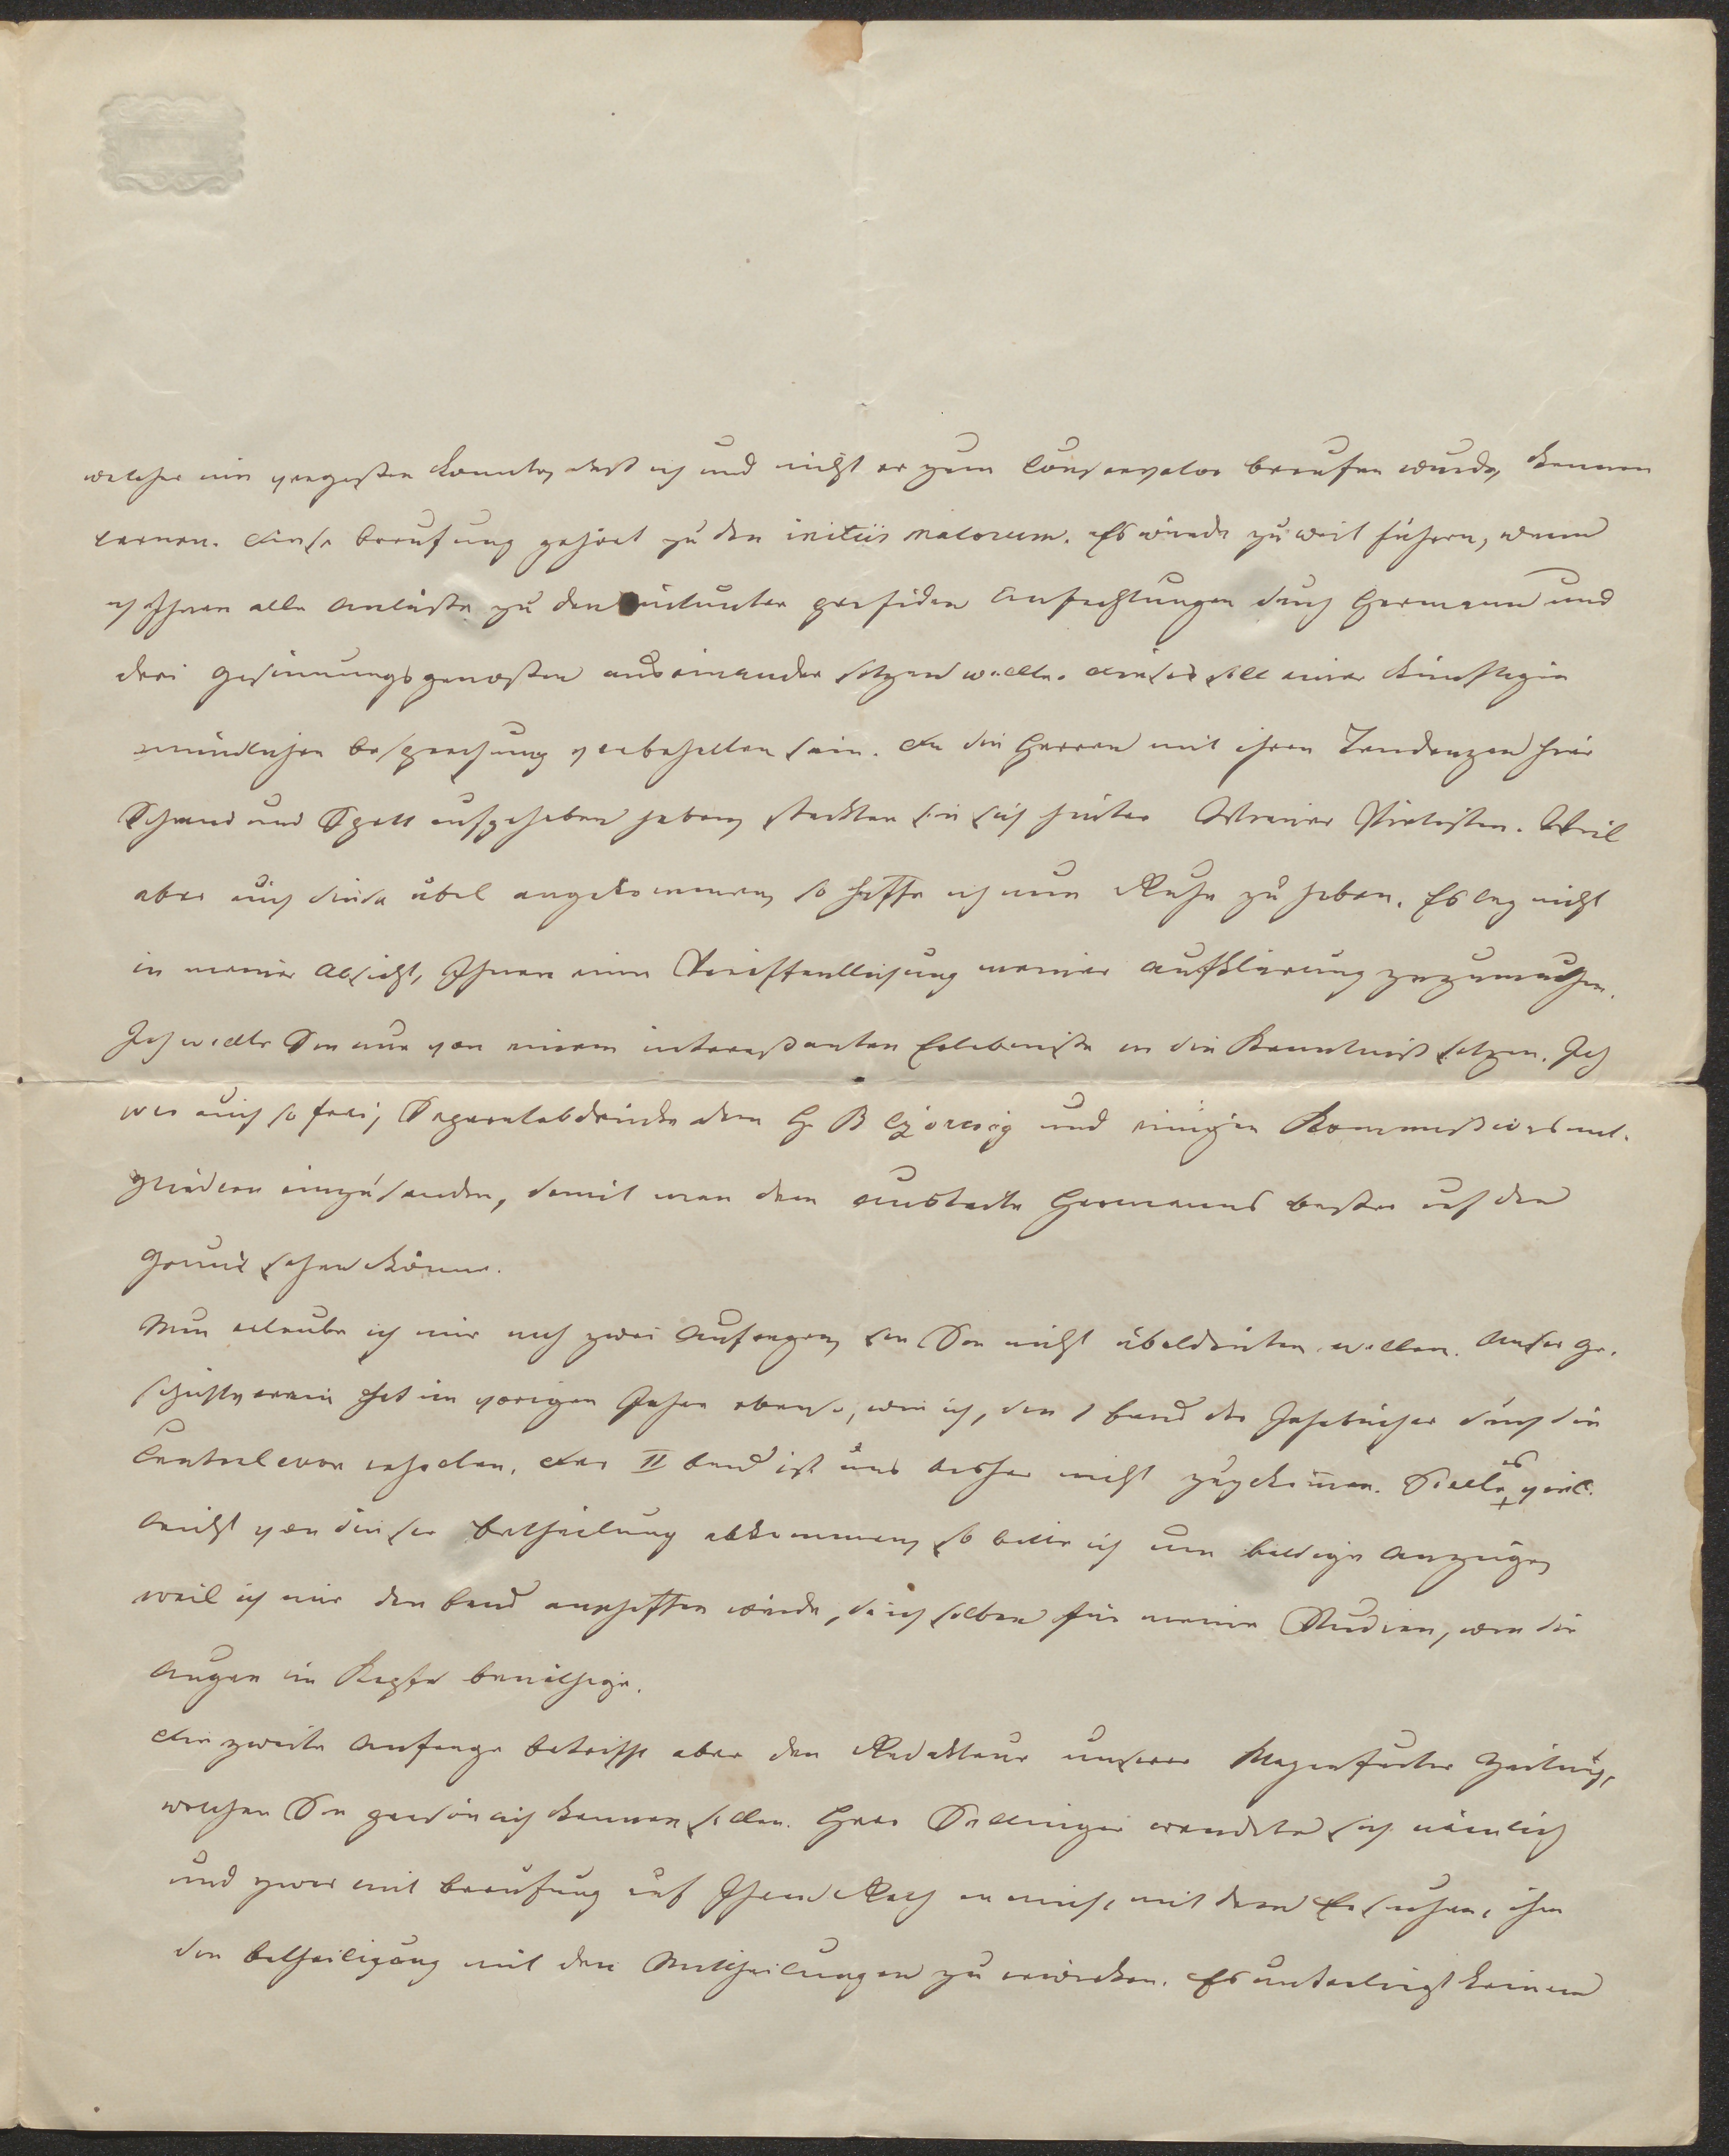 welcher nie vergessen konnte, daß ich und nicht er zum Conservator berufen wurde, kennen
lernen. Diese Berufung gehört zu den initiis malorum. Es würde zu weit führen, wenn
ich Ihnen alle Anläße zu den mitunter perfiden Anfechtungen durch Hermann und
drei Gesinnungsgenoßen auseinander setzen wollte. Dieses soll einer künftigen
mündlichen Besprechung vorbehalten sein. Da die Herren mit ihren Tendenzen hier
Schand und Spott aufgehoben haben, steckten sie sich hinter Wiener Pietisten. Weil
aber auch diese übel angekommen, so hoffe ich nun Ruhe zu haben. Es lag nicht
in meiner Absicht, Ihnen eine Veröffentlichung meiner Aufklärung zuzumuthen.
Ich wollte Sie nur von einem interessanten Erlebniße in die Kenntniß setzen. Ich
war auch so frei, Separatabdrücke dem H. B Czörnig und einigen Kommissionsmit-
gliedern einzusenden, damit man dem Hermanns besser auf den
Grund sehen könne.
Nun erlaube ich mir noch zwei Anfragen, die Sie nicht übeldeuten wollen. Unser Ge-
schichtverein hat im vorigen Jahre ebenso, wie ich, den I Band der Jahrbücher durch die
Centralcom erhalten. Der II Band ist uns bisher nicht zugekommen. Sollte es viel-
leicht von dieser Betheilung abkommen, so bitte ich um baldige Anzeige,
weil ich mir den Band anschaffen würde, da ich selben für meine Studien, wie die
Augen im Kopfe benöthige.
Die zweite Anfrage betrifft aber den Redakteur unserer Klagenfurter Zeitung,
welchen Sie persönlich kennen sollen. Herr wendete sich nämlich
und zwar mit Berufung auf Ihren Rath an mich, mit dem Ersuchen, ihm
die Betheiligung mit den Mittheilungen zu erwirken. Es unterliegt keinem